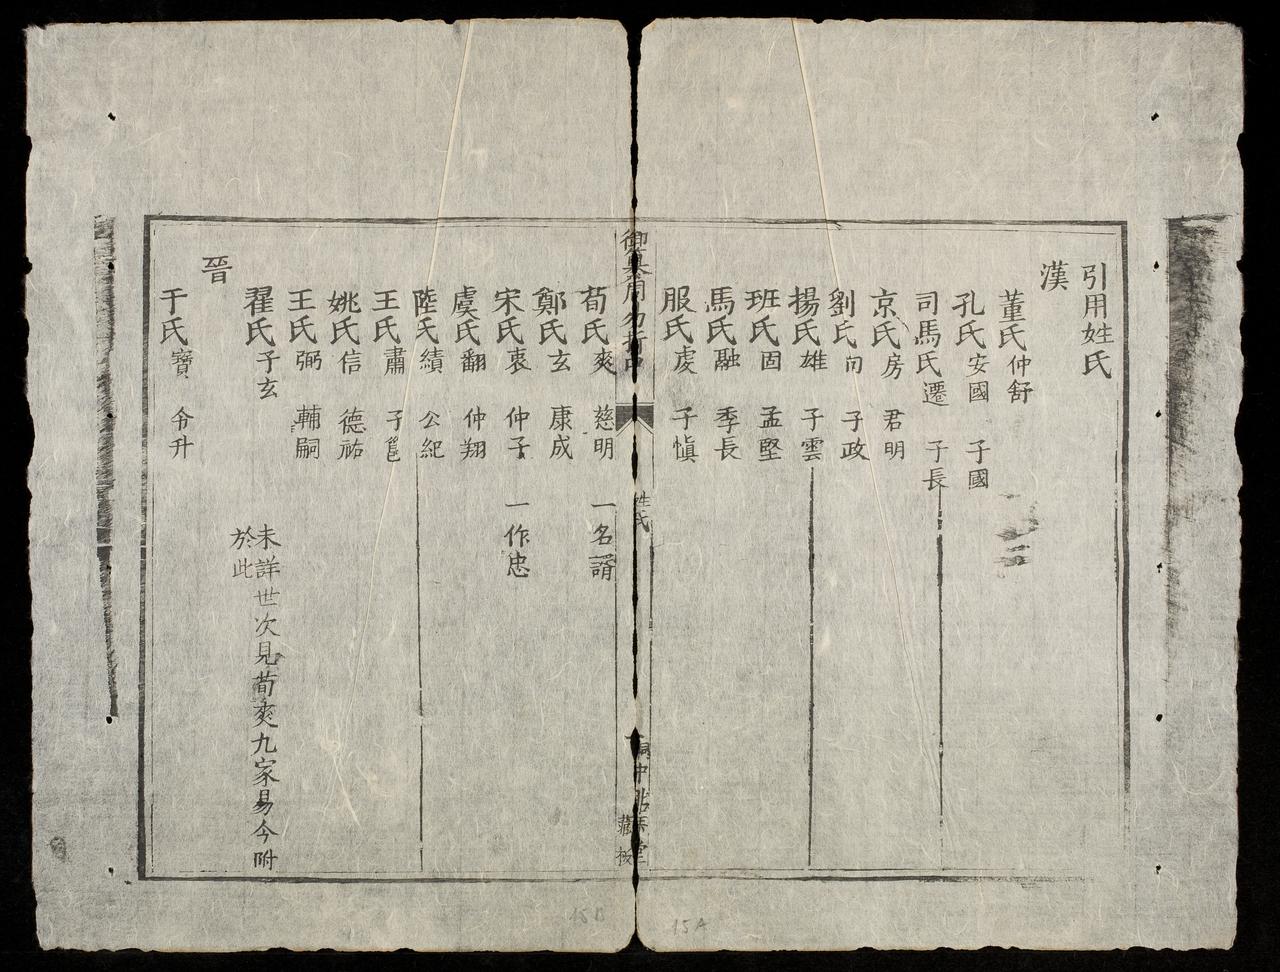 引用姓氏
漢
董氏仲舒
孔氏安國 子國
司馬氏遷 子長
京氏房 君明
劉氏向 子政
揚氏雄 子雲
班氏固 孟堅
馬氏融 季長
服氏虔 子慎
御纂周易折中
姓氏
一
藏板
荀氏爽 慈明 一名諝
鄭氏玄 康成
宋氏衷 仲子 一作忠
虞氏翻 仲翔
陸氏績 公紀
王氏肅 子邕
姚氏信 德祐
王氏弼 輔嗣
翟氏子玄 未詳世次見荀爽九家易今附
於此
晉
干氏寶 令升
15B
15A